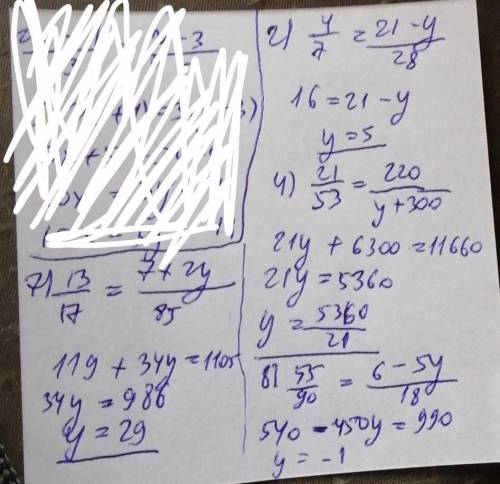 7) 13/17 = 7+2y/85
119 + 34y = 1105
34y = 986
y = 29
2) 4/7 = 21-y/28
16 = 21-y
y = 5
4) 21/53 = 220/y+300
21y + 6300 = 11660
21y = 5360
y = 5360/21
8) 55/90 = 6-5y/18
540 - 450y = 990
y = -1